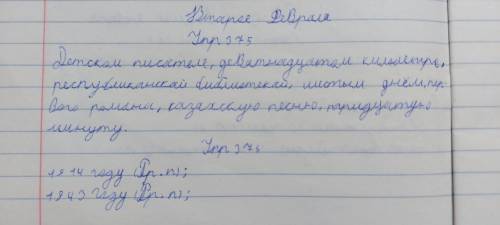 Второе Февраля
Упр 375
Детском писателе, девятнадцатом километре,
республиканской библиотекой, шестым днём, пер
вого романа, казахскую песню, тридцатую
минуту.
Упр 376
1914 году (Пр.п);
1943 году (Пр.п);